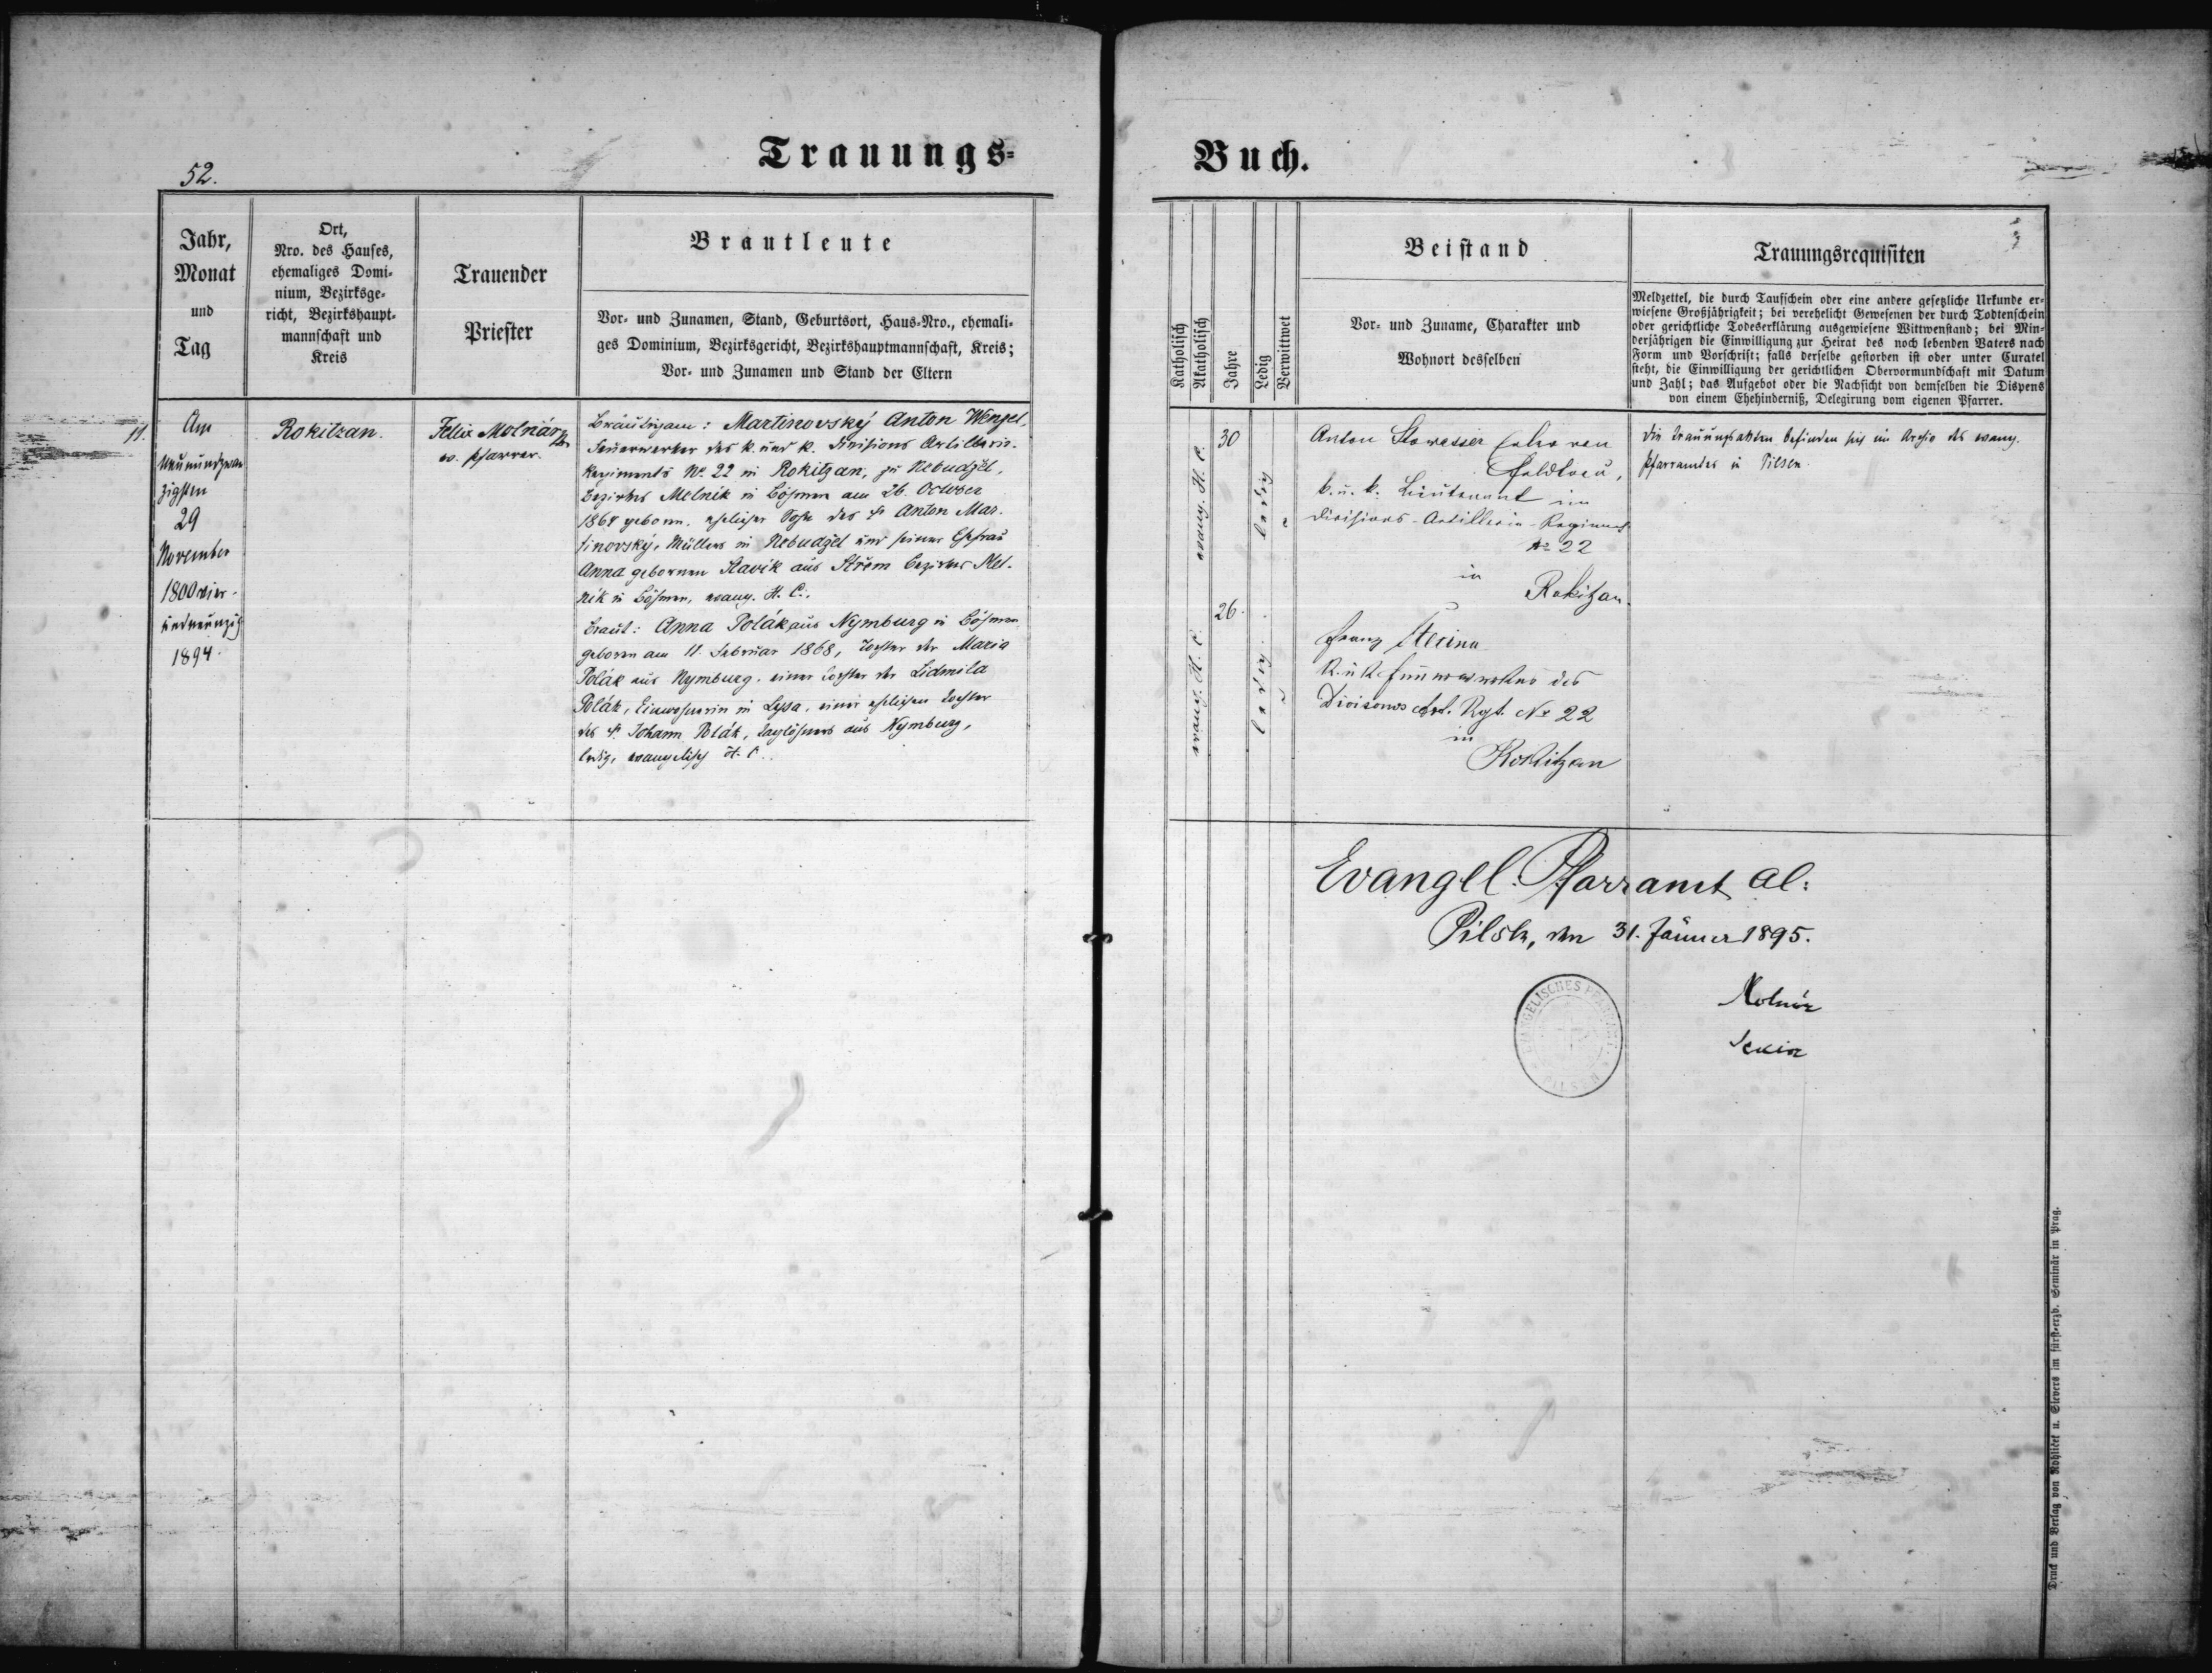 52.
Trauungs=
Jahr,
Monat
und
Tag
Ort,
Nro. des Hauses,
ehemaliges Domi-
nium, Bezirksge-
richt, Bezirkshaupt-
mannschaft und
Kreis
Trauender
Priester
Brautleute
Vor- und Zunamen, Stand, Geburtsort, Haus-Nro., ehemali-
ges Dominium, Bezirksgericht, Bezirkshauptmannschaft, Kreis;
Vor- und Zunamen und Stand der Eltern
11.
Am
Neunundzwan
zigsten
29
November
1800 vier-
undneunzig
1894.
Rokitzan.
Felix Molnár
ev. Pfarrer.
Bräutigam: Martinovský Anton Wenzel,
Feuerwerker des k. und k. Divisions Artillerie-
Regiments No. 22 in Rokitzan, zu Nebudžel,
Bezirkes Melnik in Böhmen am 26. October
1864 geboren, ehelicher Sohn des Anton Mar-
tinovský, Müllers in Nebudžel und seiner Ehefrau
Anna gebornen Slavík aus Střem Bezirkes Mel-
nik in Böhmen, evang. H. C.
Braut: Anna Polák aus Nymburg in Böhmen
geboren am 11. Februar 1868, Tochter der Maria
Polák aus Nymburg, einer Tochter der Lidmila
Polák, Einwohnerin in Lyssa, einer ehelichen Tochter
des Johann Polák, Taglöhners aus Nymburg,
ledig, evangelisch H. C.
Buch.
Katholisch
Akatholisch
Jahre
Ledig
Verwittwet
Beistand
Vor- und Zuname, Charakter und
Wohnort desselben
Trauungsrequisiten
Meldzettel, die durch Taufschein oder eine andere gesetzliche Urkunde er-
wiesene Großjährigkeit; bei verehelicht Gewesenen der durch Todtenschein
oder gerichtliche Todeserklärung ausgewiesene Wittwenstand; bei Min-
derjährigen die Einwilligung zur Heirat des noch lebenden Vaters nach
Form und Vorschrift; falls derselbe gestorben ist oder unter Curatel
steht, die Einwilligung der gerichtlichen Obervormundschaft mit Datum
und Zahl; das Aufgebot oder die Nachsicht von demselben die Dispens
von einem Ehehinderniß, Delegirung vom eigenen Pfarrer.
evang. H. C.
30
ledig
Anton Stowasser Edler von
Feldtreu,
k. u. k. Lieutenant im
Divisions-Artillerie-Regiment
No 22
in
Rokitzan.
Die Trauungsakten befinden sich im Archiv des evang.
Pfarramtes in Pilsen.
evang. H. C.
26.
ledig
Franz
K. u. K. Feuerwerker des
Divisions Art. Rgt. No 22
in
Rokitzan
Evangel. Pfarramt
Pilsen, den 31. Jänner 1895.
EVANGELISCHES PFARRAMT
PILSEN
Molnár
Senior
Druck und Verlag von Rohliček u. Sievers im fürst-erzb. Seminär in Prag.